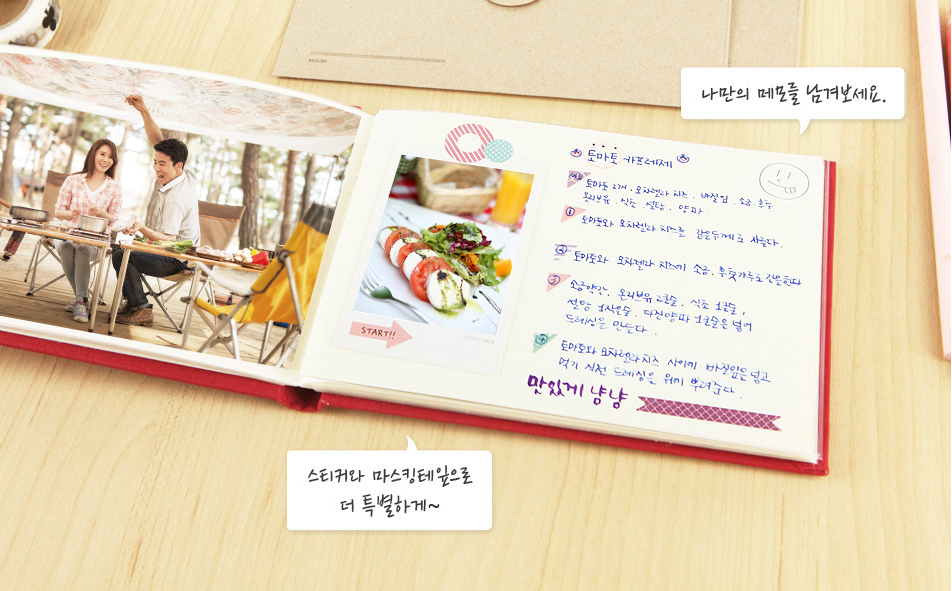 나만의 메모를 남겨보세요.
토마토 카프레제
재료 토마토 2개, 모차렐라 치즈, 바질잎, 소금, 후추
올리브유, 식초, 설탕, 양파
1 토마토와 모차렐라 치즈를 같은두께로 자른다.
2 토마토와 모차렐라 치즈에 소금, 후춧가루로 간을한다
2 소금약간, 올리브유 2큰술, 식초 1큰술,
설탕 1작은술, 다진양파 1큰술을 넣어
드레싱을 만든다.
토마토와 모차렐라치즈 사이에 바질잎을 넣고
먹기 직전 드레싱을 위에 뿌려준다.
맛있게 냠냠
START!!
스티커와 마스킹테잎으로
더 특별하게~